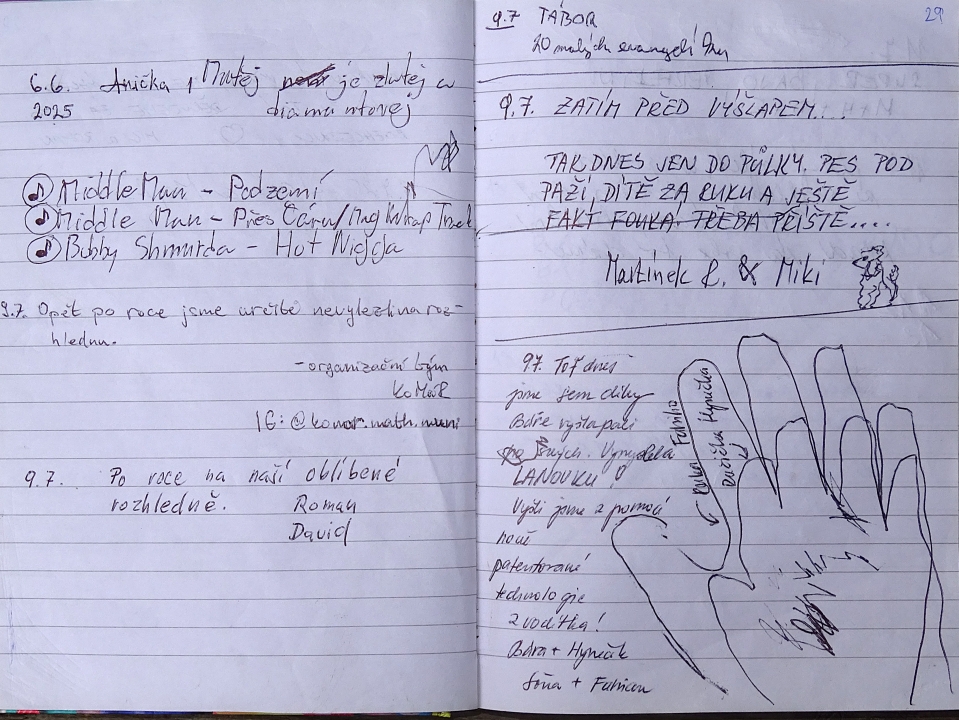 6.6. Anička, Matěj je zlatej a
2025 diamantovej
Middle Man - Podzemí
Middle Man - Přes Čáru/
Bobby Shmurda - Hot Nigga
9.7. Opět po roce jsme určitě nevylezli na roz-
hlednu.
- organizační tým
KoMáR
IG: @komar.math.muni
9.7. Po roce na naší oblíbené
rozhledně. Roman
David
9.7 TÁBOR
29
20 malých
9.7. ZATÍM PŘED VÝŠLAPEM...
TAK DNES JEN DO PŮLKY. PES POD
PAŽÍ, DÍTĚ ZA RUKU A JEŠTĚ
FAKT FOUKÁ. TŘEBA PŘÍŠTĚ....
Martínek & Miki
97. Toť dnes
jsme sem díky
Báře vyšlapali
LANOVKU!
Vyšli jsme z pomocí
nové
patentované
technologie
z vodítka!
Bára + Hyneček
Soňa + Fabian
Ruka Fabiho
Pacička Hynečka